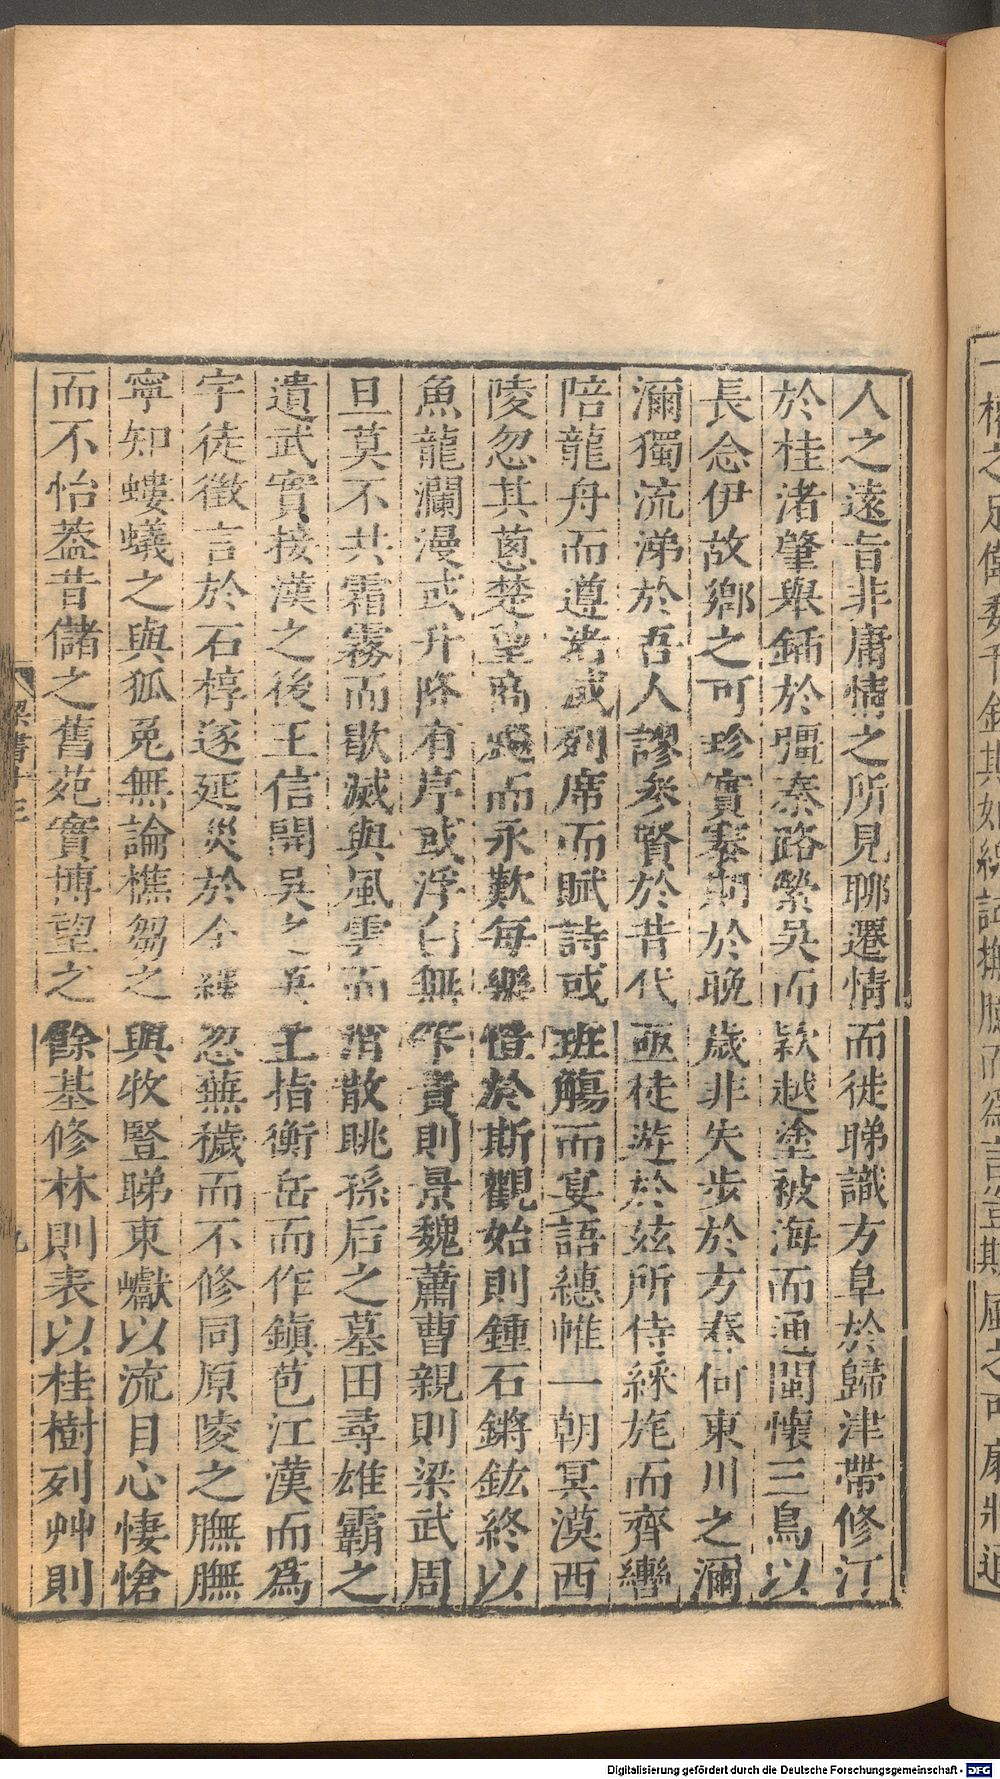 一櫝之足偉委千金其如線試撫臆而為言豈斯風之可扇將通
人之遠旨非庸情之所見聊遷情而徙睇識方阜於歸津帶修汀
於桂渚肇舉鍤於彊秦路縈吳而款越塗被海而通閩懷三鳥以
長念伊故鄉之可珍實褰期於晚歲非失步於方春何東川之瀰
瀰獨流涕於吾人謬參賢於昔代亟徒遊於茲所侍綵旄而齊轡
陪龍舟而遵渚或列席而賦詩或班觴而宴語繐帷一朝冥漠西
陵忽其蔥楚望商飈而永歎每樂愷於斯觀始則鍾石鏘鈜終以
魚龍瀾漫或升降有序或浮白無筭貴則景魏蕭曹親則梁武周
旦莫不共霜霧而歇滅與風雲而消散眺孫后之墓田尋雄霸之
遺武實接漢之後王信開吳之英主指衡岳而作鎮苞江漢而爲
宇徒徵言於石椁遂延災於金縷忽蕪穢而不修同原陵之膴膴
寧知螻蟻之與狐兔無論樵芻之與牧豎睇東巘以流目心悽愴
而不怡葢昔儲之舊苑實博望之餘基修林則表以桂樹列艸則
梁書十三
九
Digitalisierung gefördert durch die Deutsche Forschungsgemeinschaft - DFG